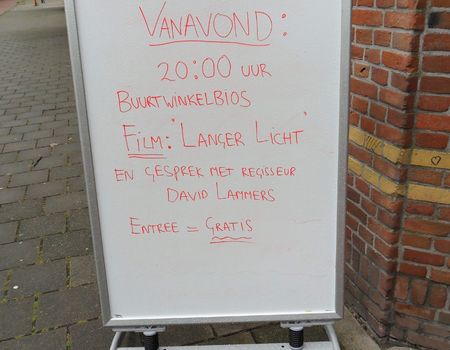 VANAVOND:
20:00 UUR
BUURTWINKELBIOS
FILM: "LANGER LICHT"
EN GESPREK MET REGISSEUR
DAVID LAMMERS
ENTREE = GRATIS